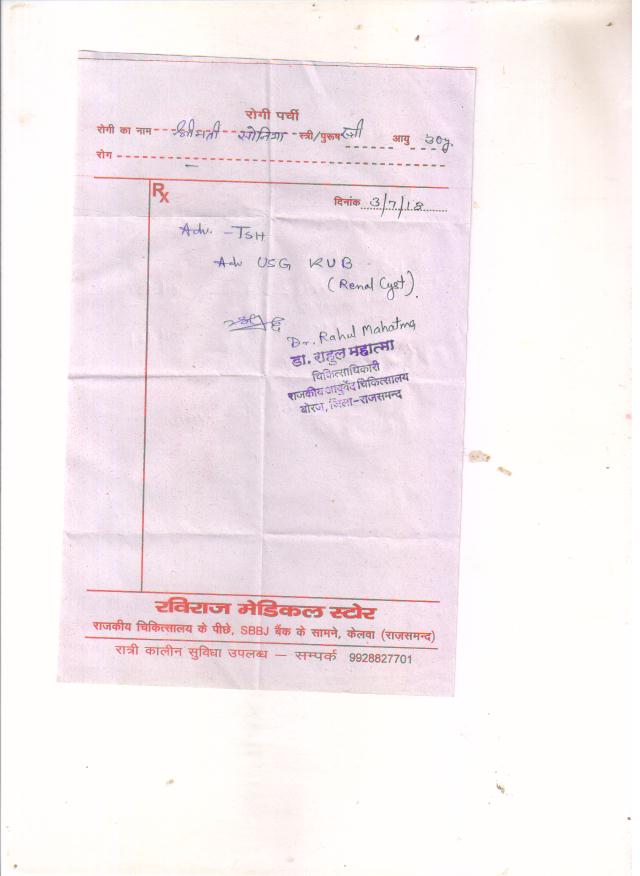 रोगी पर्ची
रोगी का नाम श्रीमती सोनिया स्त्री/पुरूष स्त्री आयु 30y.
रोग –
Rx
दिनांक 3/7/18
Adv. - TSH
Adv USG KUB
(Renal Cyst).
Dr. Rahul Mahatma
डा. राहुल महात्मा
चिकित्साधिकारी
राजकीय आयुर्वेद चिकित्सालय
बोरज, जिला-राजसमन्द
रविराज मेडिकल स्टोर
राजकीय चिकित्सालय के पीछे, SBBJ बैंक के सामने, केलवा (राजसमन्द)
रात्री कालीन सुविधा उपलब्ध – सम्पर्क 9928827701